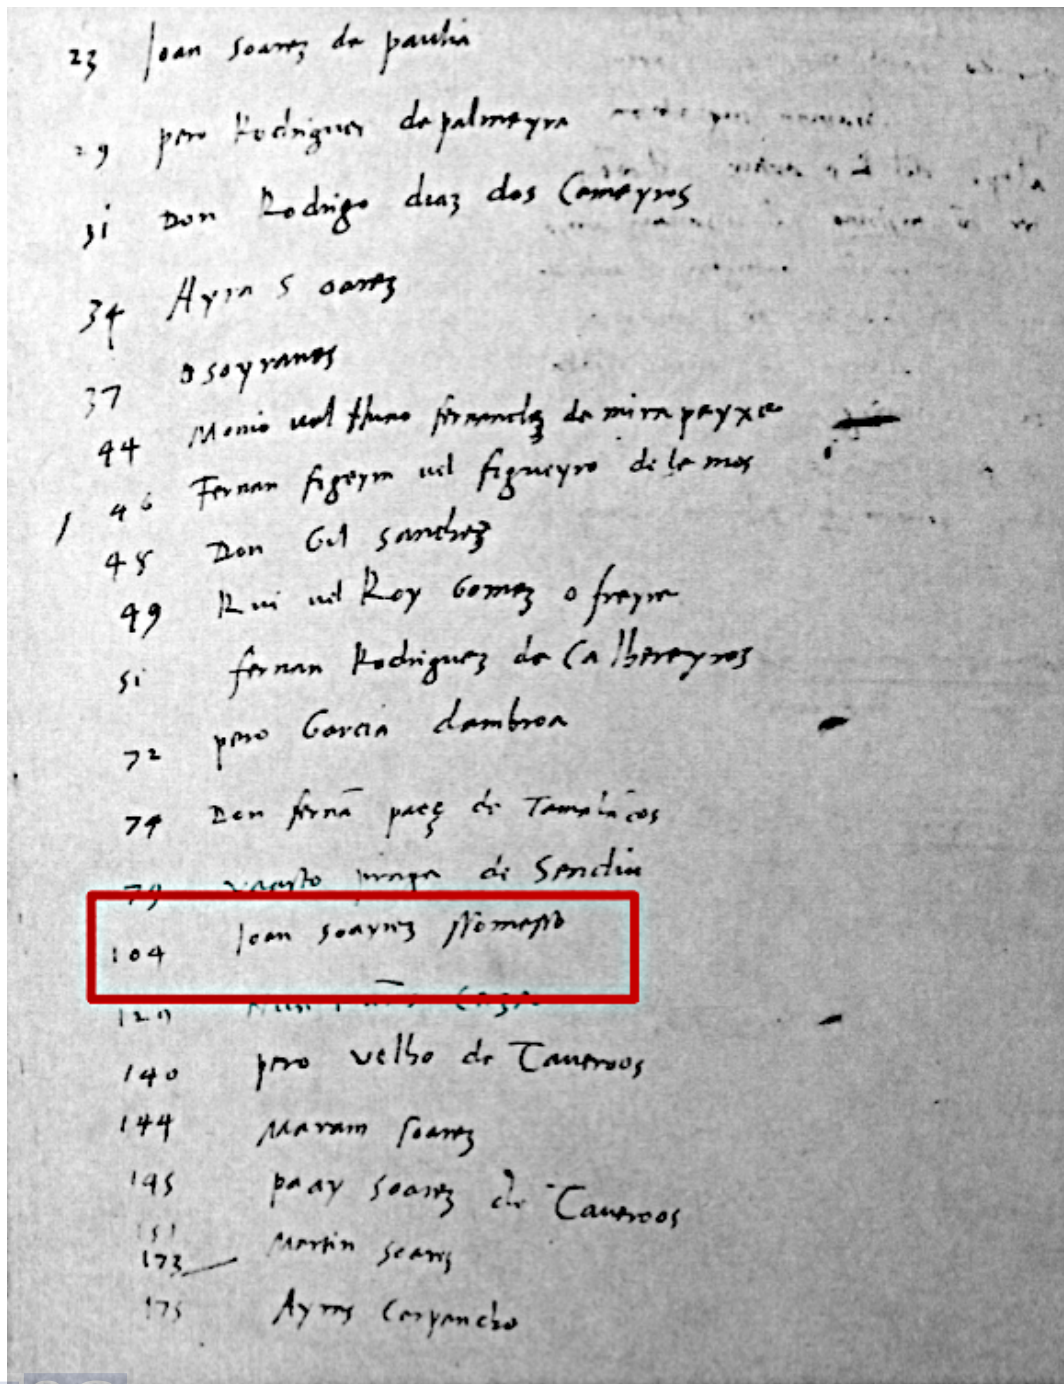 23 Joan Soarez de pauha
29 pero Rodriguez de palmeyra
31 Don Rodrigo diaz dos Cameyros
34 Ayra S oarez
37 osoyranes
44 Monio vel Nuno fernandez de mirapeyxe
46 Fernan figeyra vel figueyro de le mos
48 Don Gil Sanchez
49 Rui vel Roy Gomez o freyre
51 fernan Rodriguez de Calhereyros
72 pero Garcia dambroa
74 Don fernã paez de Tamalãcos
79 praga de Sendin
104 Joan Soayrez
120
140 pero velho de Taveroos
144 Soarez
145 paay Soarez de Taveroos
151
173 Martin Soarez
175 Ayras Carpancho